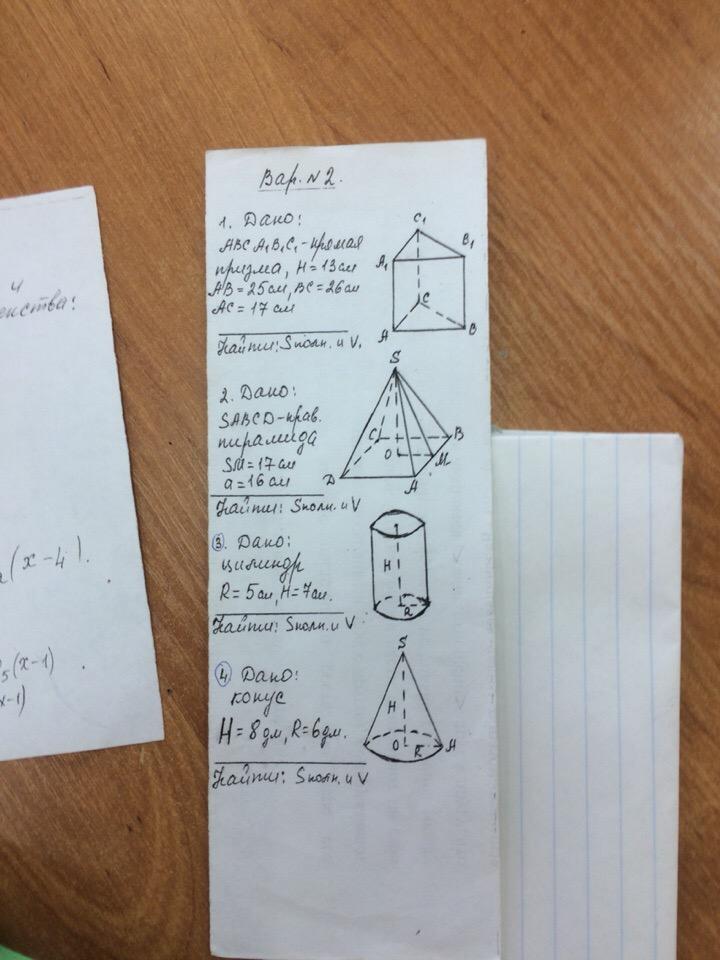 Вар. №2.
1. Дано:
ABCA₁B₁C₁-прямая
призма, H=13см
AB=25см, BC=26см
AC=17см
Найти: Sполн. и V.
C₁
B₁
A₁
C
A
B
2. Дано:
SABCD-прав.
пирамида
SM=17см
a=16см
Найти: Sполн. и V
S
C
B
O
M
D
A
3. Дано:
цилиндр
R=5см, H=7см.
Найти: Sполн. и V
H
R
4 Дано:
конус
H=8дм, R=6дм.
Найти: Sполн. и V
S
H
O
R
A
и
енства:
(x-4).
5(x-1)
x-1)